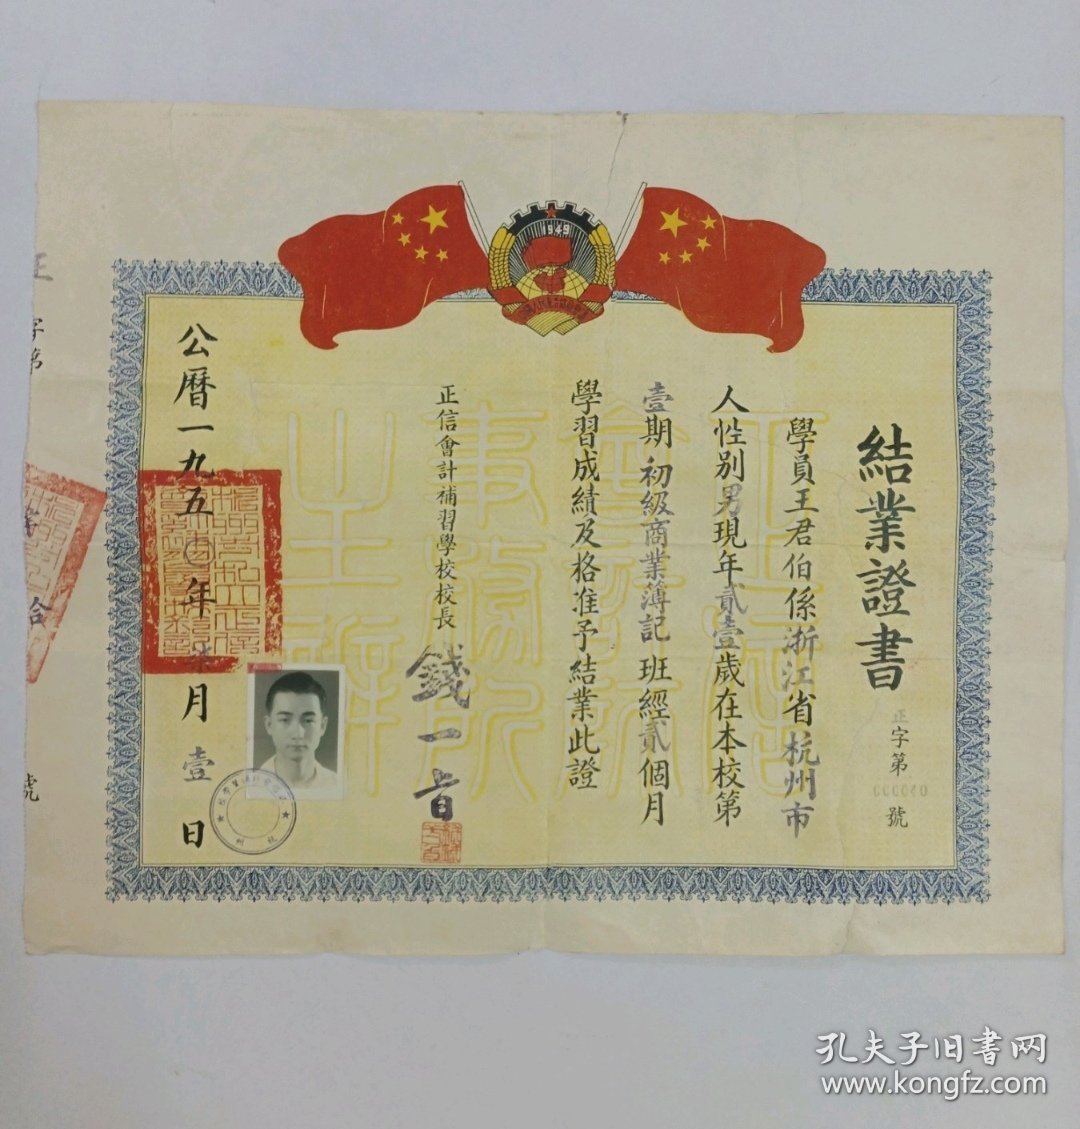 1949
結業證書
正字第
號
學員王君伯係浙江省杭州市
人性別男現年貳壹歲在本校第
壹期初級商業簿記班經貳個月
學習成績及格准予結業此證
正信會計補習學校校長
公曆一九五〇年柒月壹日
正信會計師事務所主辦
字第
拾
號
孔夫子旧書网
www.kongfz.com